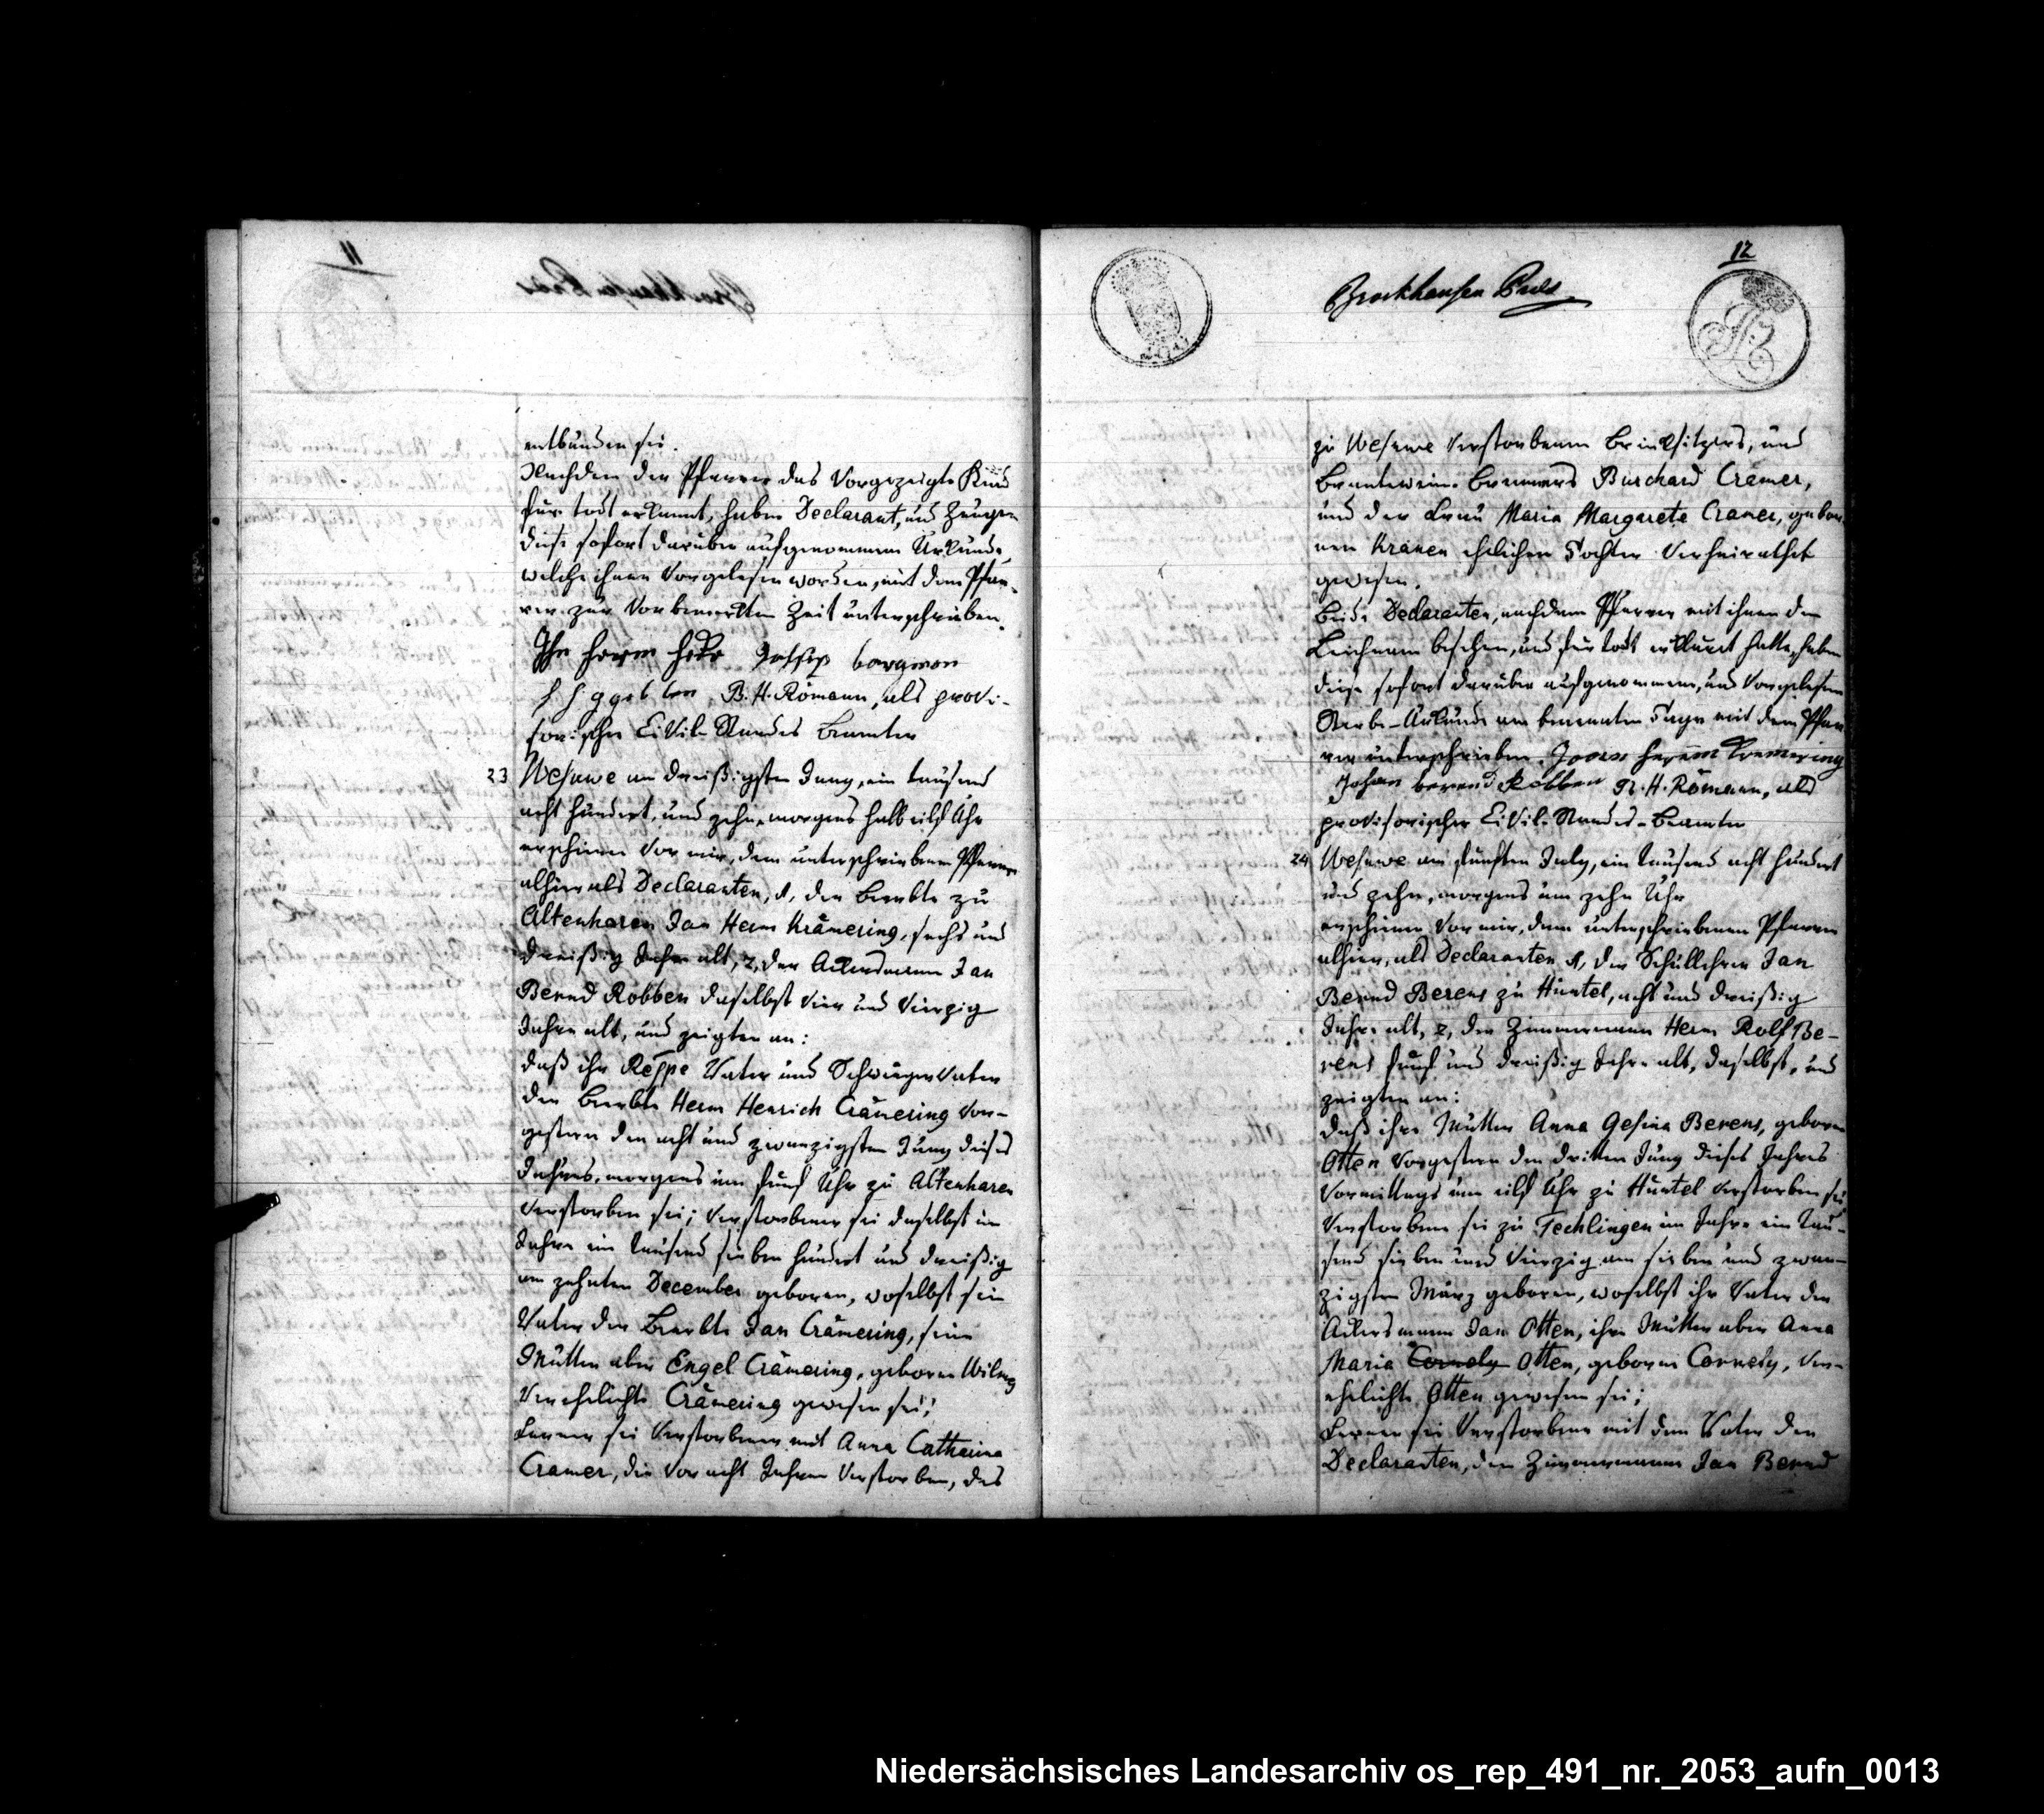 11
entbunden sei.
Nachdem der Pfarrer das Vorgezeigte Kind
für todt erkannt, haben Declarant, und Zeugen
diese sofort darüber aufgenommene Urkunde,
welche ihnen Vorgelesen worden, mit dem Pfar-
rer zur Vorbemerkten Zeit unterschrieben.
Jan herm borgman
B. H. Römann, als provi-
sorischer Civil-Standes Beamter
23 Wesuwe am dreißigsten Juny, ein tausend
acht hundert, und zehn, morgens halb eilf Uhr
erschienen Vor mir, dem unterschriebenen Pfarrer
alhier als Declaranten, 1, der Beerbte zu
Altenharen Jan Herm Krämering, sechs und
dreißig Jahre alt, 2, der Ackersmann Jan
Bernd Robben daselbst Vier und Vierzig
Jahre alt, und zeigten an:
daß ihr Reſpe Vater und Schwiegervater
der Beerbte Herm Henrich Crämering Vor-
gestern den acht und zwanzigsten Juny dieses
Jahres, morgens um fünf Uhr zu Altenharen
Verstorben sei; Verstorbener sei daselbst im
Jahre ein tausend sieben hundert und dreißig
am zehnten December geboren, woselbst sein
Vater der Beerbte Jan Crämering, seine
Mutter aber Engel Crämering, geborne Wilmes
Verehelichte Crämering gewesen sei;
Ferner sei Verstorbener mit Anna Catharina
Cramer, die Vor acht Jahren Verstorben, des
12
Brockhausen
zu Wesuwe Verstorbenen Brinksitzers, und
Brantewein-Brenners Burchard Cramer,
und der Frau Maria Margarete Cramer, gebor-
nen Kramer ehlichen Tochter Verheirathet
gewesen.
Beide Declaranten, nachdem Pfarrer mit ihnen den
Leichnam besehen, und für todt erklärt hatte, haben
diese sofort darüber aufgenommene, und Vorgelesene
Sterbe-Urkunde am benannten Tage mit dem Pfar-
rer unterschrieben. Joann herm Kremering
Johan berend Robben B. H. Römann, als
provisorischer Civil-Standes-Beamter
24 Wesuwe am fünften July, ein tausend acht hundert
und zehn, morgens um zehn Uhr
erschienen Vor mir, dem unterschriebenen Pfarrer
alhier, als Declaranten 1, der Schullehrer Jan
Bernd Berens zu Hüntel, acht und dreißig
Jahre alt, 2, der Zimmermann Herm Rolf Be-
rens fünf und dreißig Jahre alt, daselbst, und
zeigten an:
daß ihre Mutter Anna Gesina Berens, geborne
Otten Vorgestern den dritten Juny dieses Jahres
Vormittags um eilf Uhr zu Hüntel Verstorben sei
Verstorbene sei zu Techlingen im Jahre ein tau-
send sieben und Vierzig am sieben und zwan-
zigsten März geboren, woselbst ihr Vater der
Ackersmann Jan Otten, ihre Mutter aber Anna
Maria Cornely Otten, geborne Cornely, Ver-
ehelichte Otten gewesen sei;
Ferner sei Verstorbene mit dem Vater der
Declaranten, dem Zimmermann Jan Bernd
Niedersächsisches Landesarchiv os_rep_491_nr._2053_aufn_0013